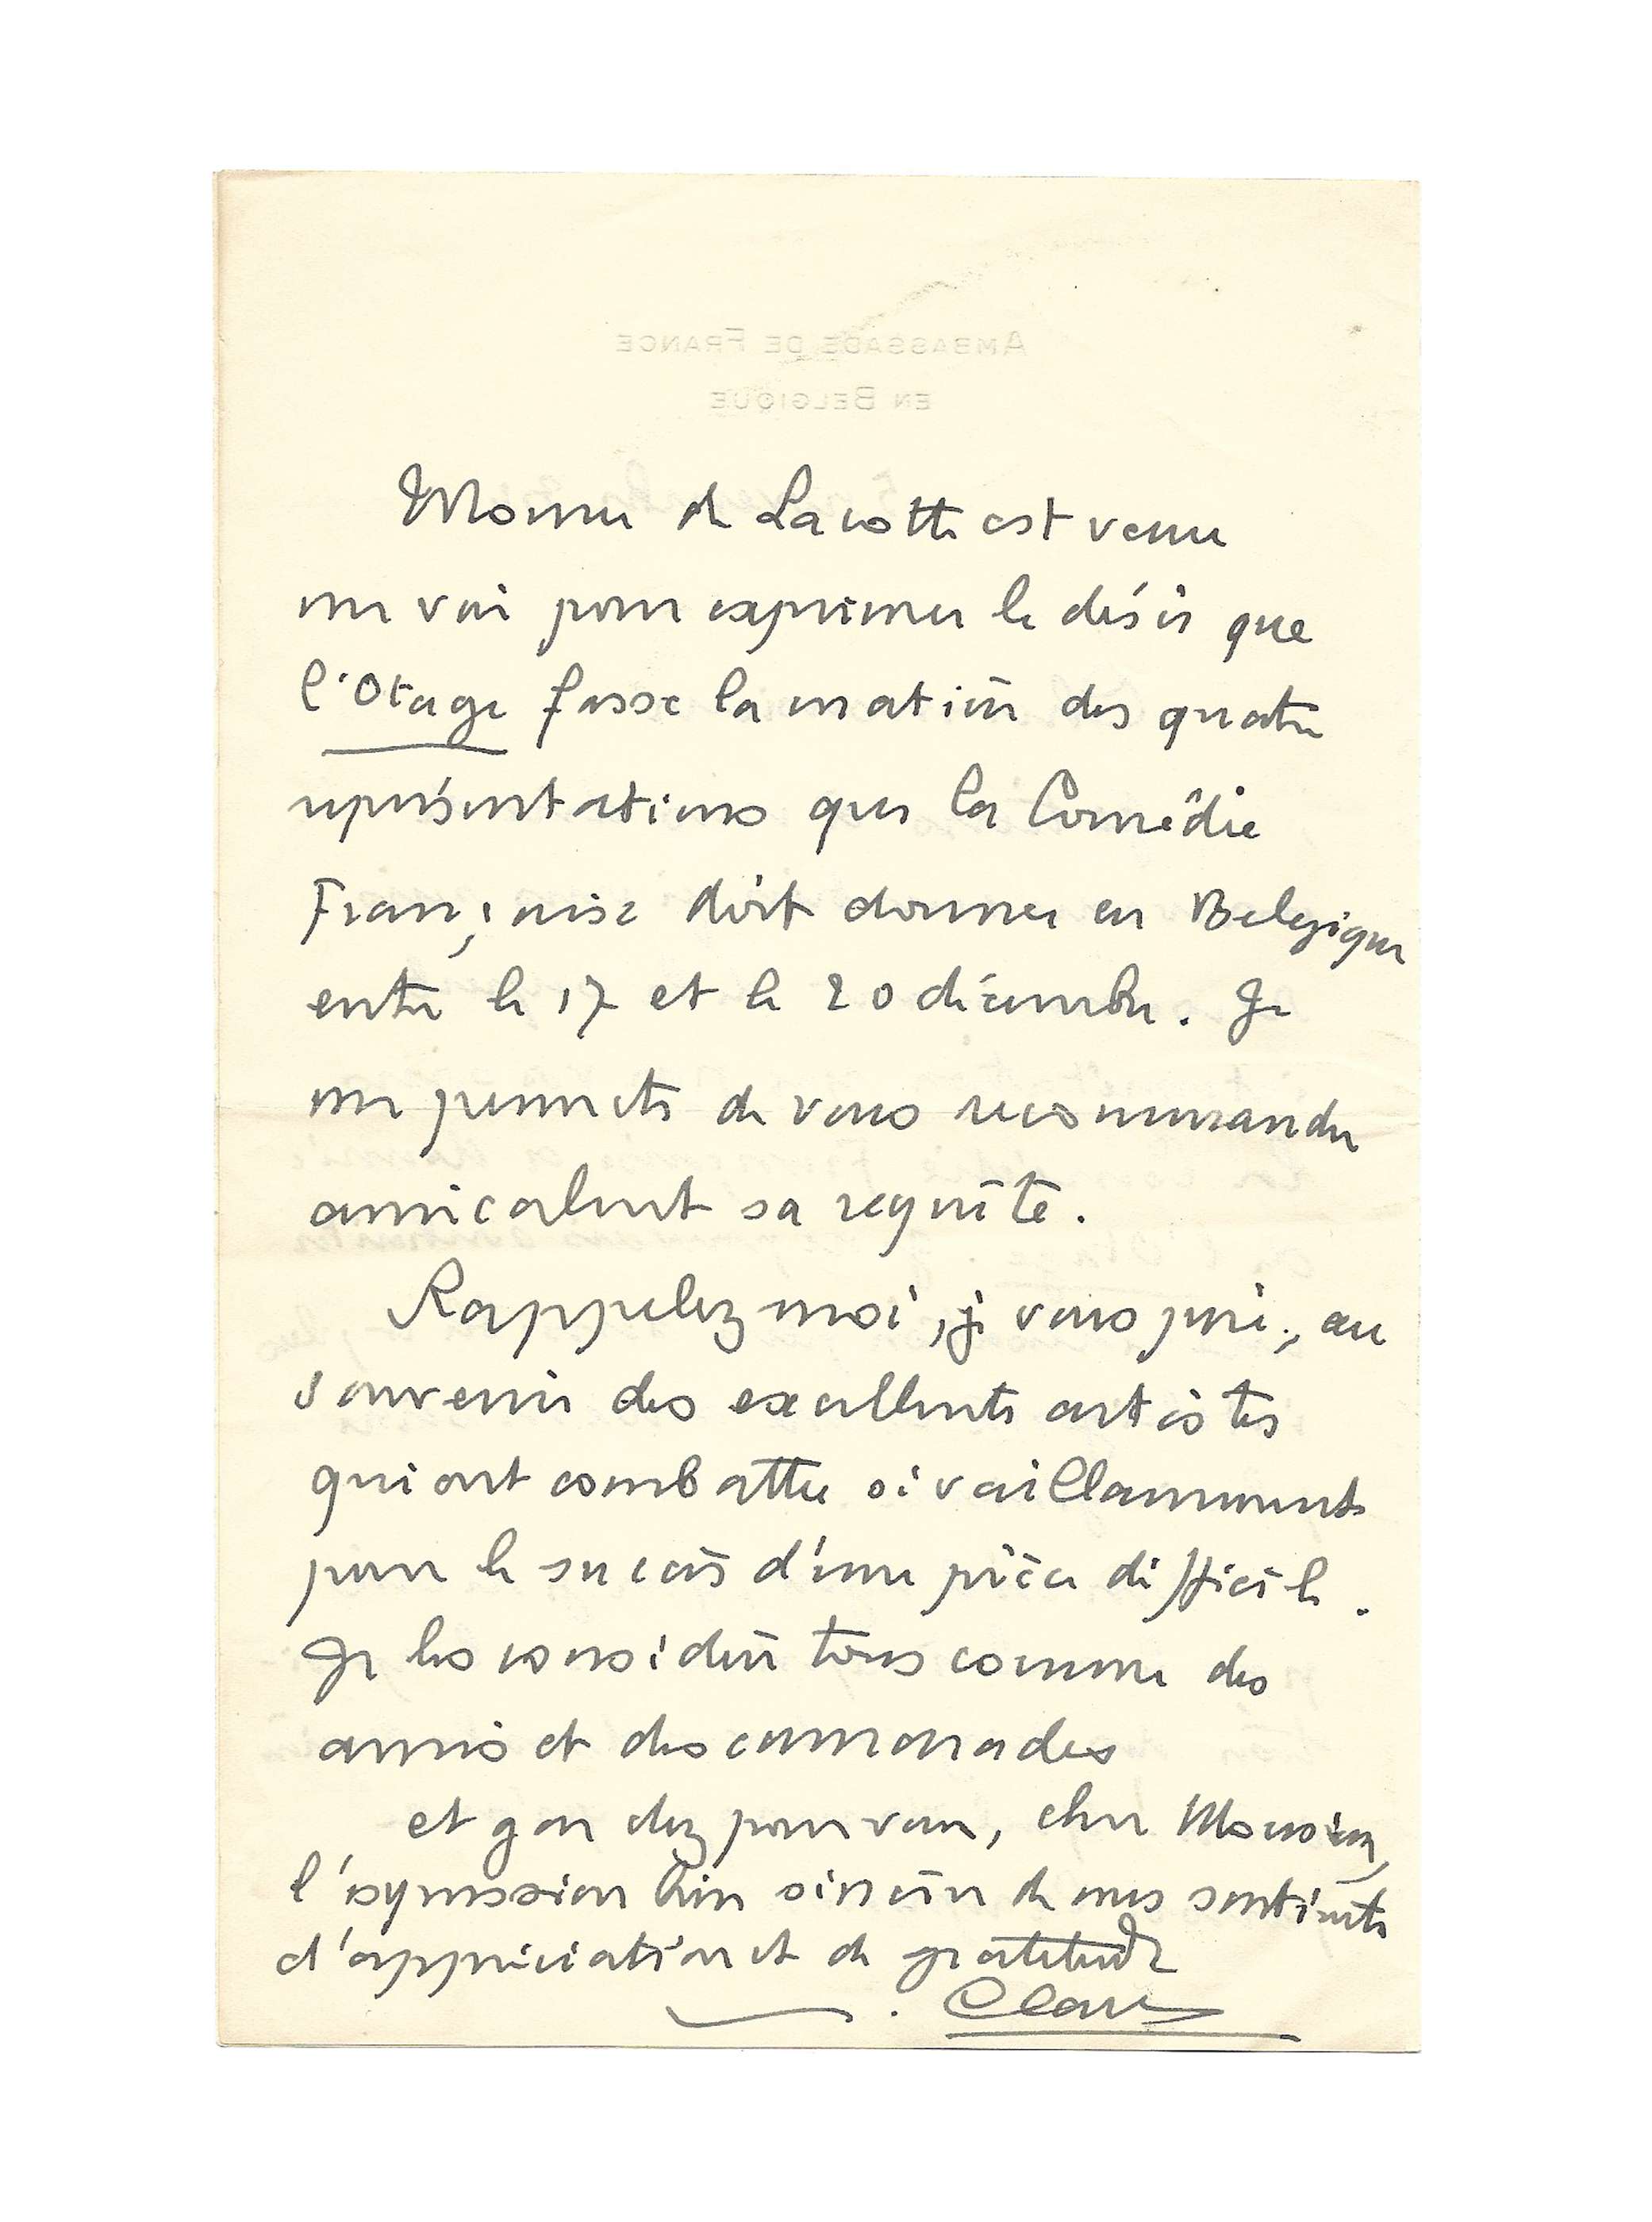 AMBASSADE DE FRANCE
EN BELGIQUE
de Lacotte est venu
me voir pour exprimer le désir que
l'Otage fasse la matière des quatre
représentations que la Comédie
Française doit donner en Belgique
entre le 17 et le 20 décembre. Je
me permets de vous recommander
amicalement sa requête.
Rappelez moi, je vous prie, au
souvenir des excellents artistes
qui ont combattu si vaillamment
pour le succès d'une pièce difficile.
Je les considère tous comme des
amis et des camarades
et gardez pour vous, cher Monsieur,
l'expression bien sincère de mes sentiments
d'appréciation et de gratitude